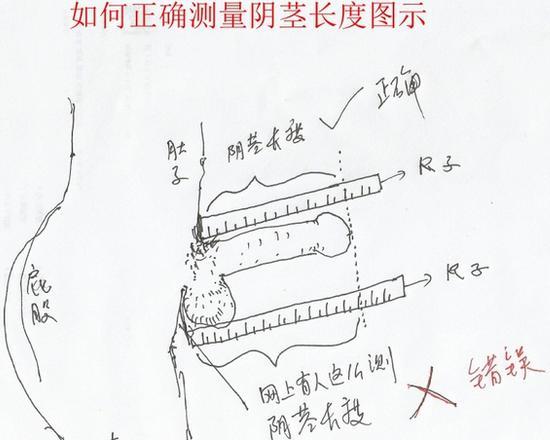 如何正确测量阴茎长度图示
正确
肚子
阴茎长度
尺子
尺子
屁股
网上有人这么测
阴茎长度
错误